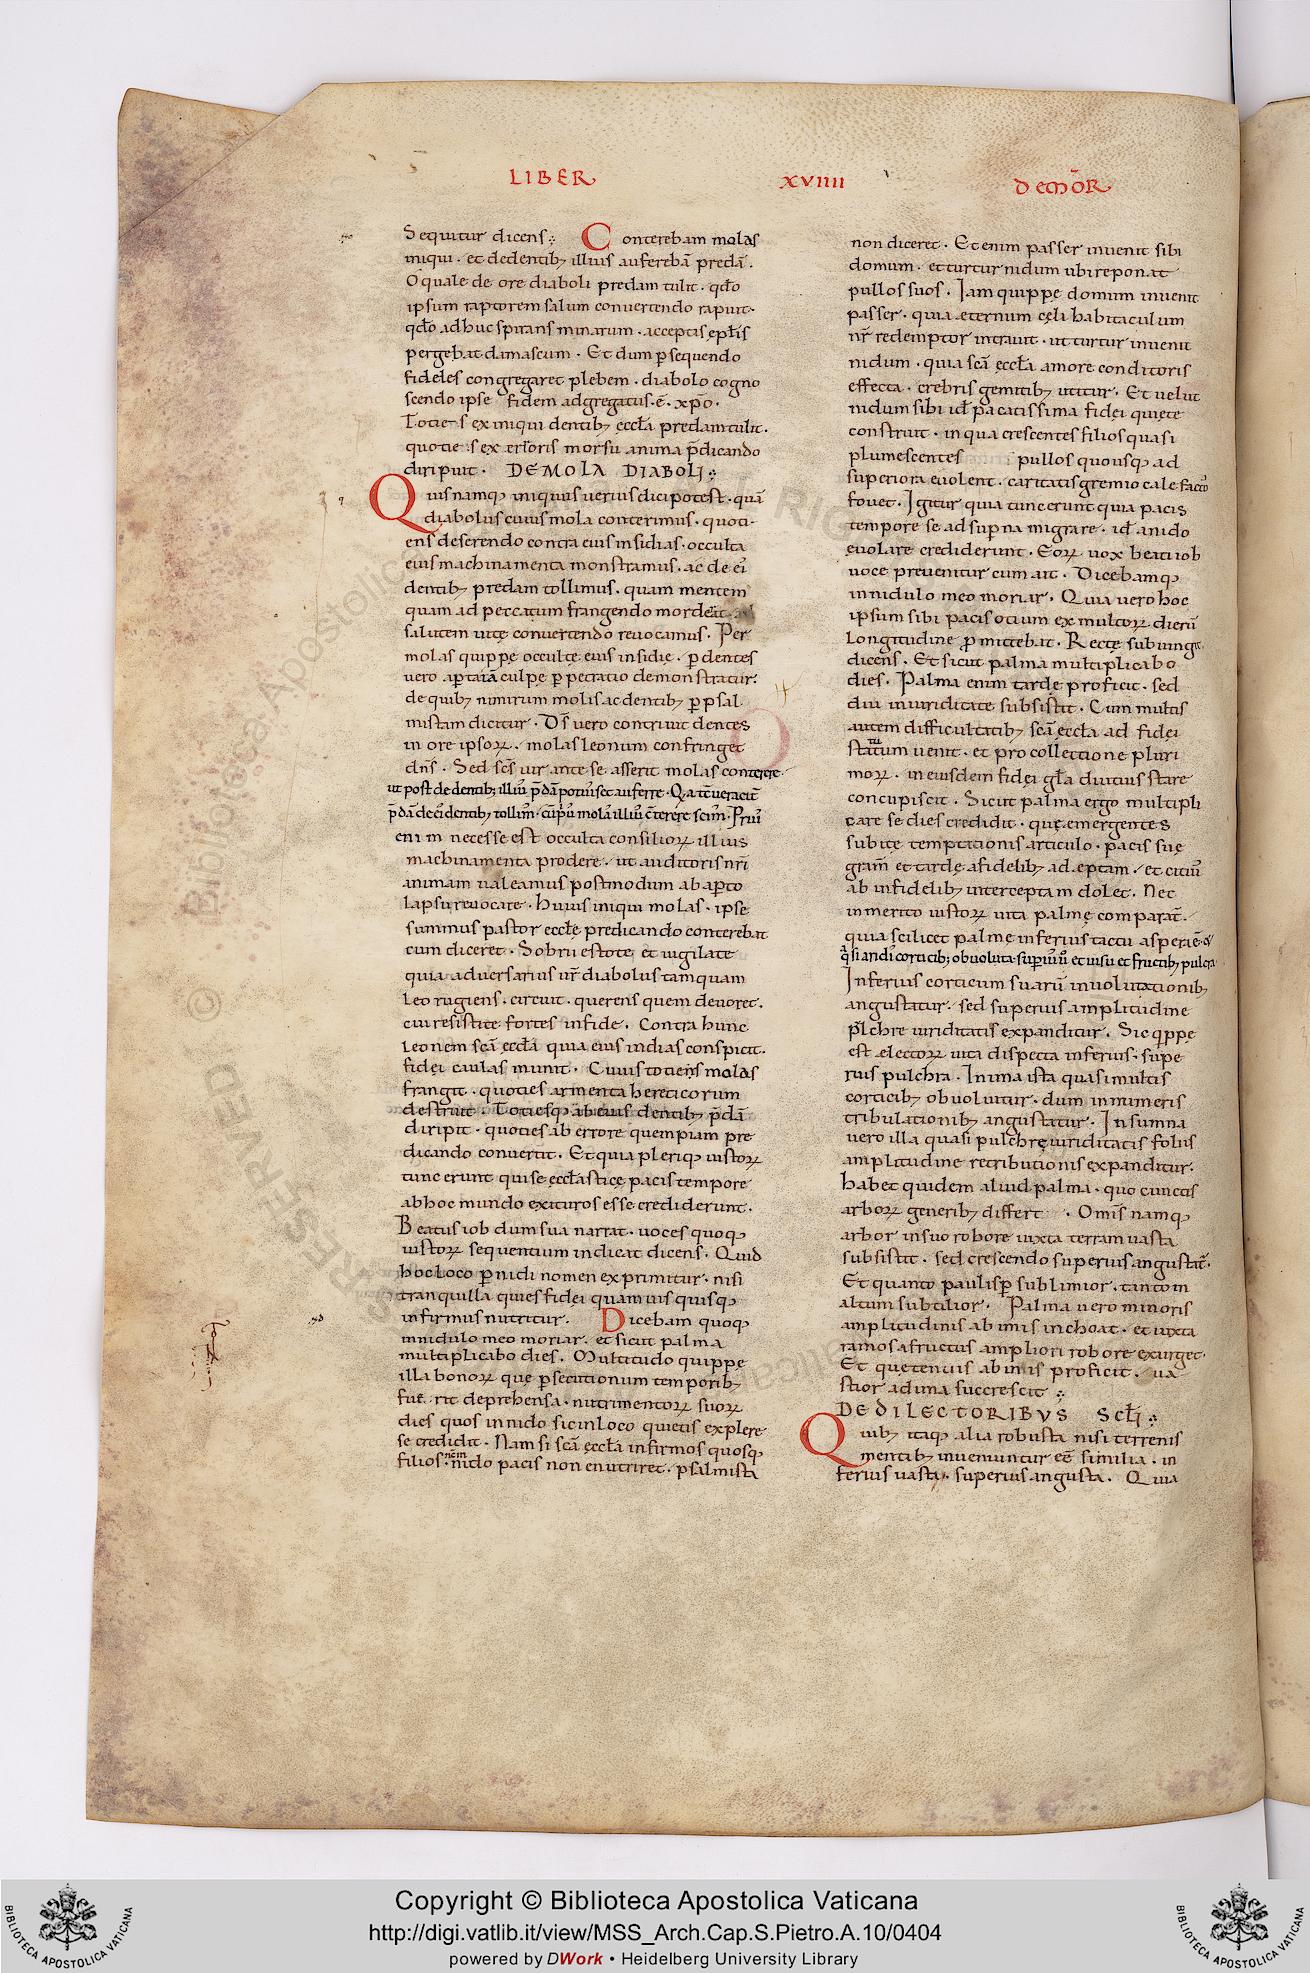 LIBER XVIIII DEMŌR
Sequitur dicens : Conterebam molas
iniqui . et dedentib; illius auferebā predā .
O quale de ore diaboli predam tulit . qdo
ipsum raptorem saulum convertendo rapuit .
qdo adhuc spirans minarum . acceptis eptis
pergebat damascum . Et dum psequendo
fideles congregaret plebem . diabolo cogno
scendo ipse fidem adgregatus . ē . xpo .
Totiens ex iniqui dentib; eccta predam tulit .
quotiens ex erroris morsu anima pdicando
diripuit . DE MOLA DIABOLI :
Quis namq; iniquus verius dici potest . quā
diabolus cuius mola conterimus . quoti
ens deserendo contra eius insidias . occulta
eius machinamenta monstramus . ac de ei
dentib; predam tollimus . quam mentem
quam ad peccatum frangendo mordeat . ad
salutem vitę convertendo revocamus . Per
molas quippe occultę eius insidię . p dentes
vero aptaiā culpę ppetratio demonstratur .
de quib; nimirum molis ac dentib; p psal
mistam dicitur . Ds vero conteruit dentes
in ore ipsoꝝ . molas leonum confringet
dns . Sed scs vir ante se asserit molas conterere .
ut post de dentib; illiu pdā potuisset auferre .
pdā de ei dentib; tollim .
enim necesse est occulta consilioꝝ illius
machinamenta prodere . ut auditoris nri
animam valeamus postmodum ab apto
lapsu revocare . Huius iniqui molas . ipse
summus pastor ecctę predicando conterebat
cum diceret . Sobrii estote et vigilate
quia adversarius vr diabolus tamquam
leo rugiens . circuit . querens quem devoret .
cui resistite fortes in fide . Contra hunc
leonem scā ecctā quia eius indias conspicit .
fidei caulas munit . Cuius totiens molas
frangit . quoties armenta hereticorum
destruit . Totiesq; ab eius dentib; pdā
diripit . quoties ab errore quempiam pre
dicando convertit . Et quia pleriq; iustoꝝ
tunc erunt qui se ecctasticę pacis tempore
ab hoc mundo exituros esse crediderunt .
Beatus iob dum sua narrat . voces quoq;
iustoꝝ sequentium indicat dicens . Quid
hoc loco p nidi nomen exprimitur . nisi
tranquilla quies fidei qua nivis quisq;
infirmus nutritur . Dicebam quoq;
in nidulo meo moriar . et sicut palma
multiplicabo dies . Multitudo quippe
illa bonoꝝ que psecutionum temporib;
fue rit deprehensa . nutrimentoꝝ suoꝝ
dies quos in nido sic in loco quietis explere
se credidit . Nam si scā ecctā infirmos quosq;
filios . in nido pacis non enutriret . psalmista
non diceret . Etenim passer invenit sibi
domum . et turtur nidum ubi reponat
pullos suos . Iam quippe domum invenit
passer . quia eternum cęli habitaculum
nr redemptor intravit . ut turtur invenit
nidum . quia scā ecctā amore conditoris
effecta . crebris gemitib; utitur . Et velut
nidum sibi id pacatissima fidei quięte
construit . in qua crescentes filios quasi
plumescentes pullos quousq; ad
superiora evolent . caritatis gremio cale facto
fovet . Igitur quia tunc erunt quia pacis
tempore se ad supna migrare . id a nido
evolare crediderunt . Eoꝝ vox beati iob
voce prevenitur cum ait . Dicebamq;
in nidulo meo moriar . Quia vero hoc
ipsum sibi pacis otium ex multoꝝ dierū
longitudine pmittebat . Rectę subiungit .
dicens . Et sicut palma multiplicabo
dies . Palma enim tardę proficit . sed
diu in viriditate subsistit . Cum multis
autem difficultatib; scā ecctā ad fidei
statum venit . et pro collectione pluri
moꝝ . in eiusdem fidei gtā diutius stare
concupiscit . Sicut palma ergo multipli
care se dies credidit . quę emergentes
subitę temptationis articulo . pacis suę
gram et tardę a fidelib; ad eptam . et citiu
ab infidelib; interceptam dolet . Nec
inmerito iustoꝝ vita palmę comparat .
quia scilicet palme inferius tactu aspera ē . et
qsi aridi corticib; obvoluta . supiu vo et visu et fructib; pulcra .
Inferius corticum suarū involutationib;
angustatur . sed superius amplitudine
plchre viriditatis expanditur . Sic qppe
est electoꝝ vita dispecta inferius . supe
rius pulchra . In ima ista quasi multis
corticib; obvolvitur . dum innumeris
tribulationib; angustatur . In summa
vero illa quasi pulchrę viriditatis foliis
amplitudine retributionis expanditur .
habet quidem aliud palma . quo cunctis
arboꝝ generib; differt . Omis namq;
arbor in suo robore iuxta terram vasta
subsistit . sed crescendo superius angustat .
Et quanto paulisp sublimior . tanto in
altum subtilior . Palma vero minoris
amplitudinis ab imis inchoat . et iuxta
ramos a fructus ampliori robore exurget .
Et quę tenuis ab imis proficit . va
stior ad ima succrescit :
DE DILECTORIBVS SCLI :
Quib; itaq; alia robusta nisi terrenis
mentib; inveniuntur eē similia . in
ferius vasta . superius angusta . Quia
Copyright © Biblioteca Apostolica Vaticana
http://digi.vatlib.it/view/MSS_Arch.Cap.S.Pietro.A.10/0404
powered by DWork • Heidelberg University Library